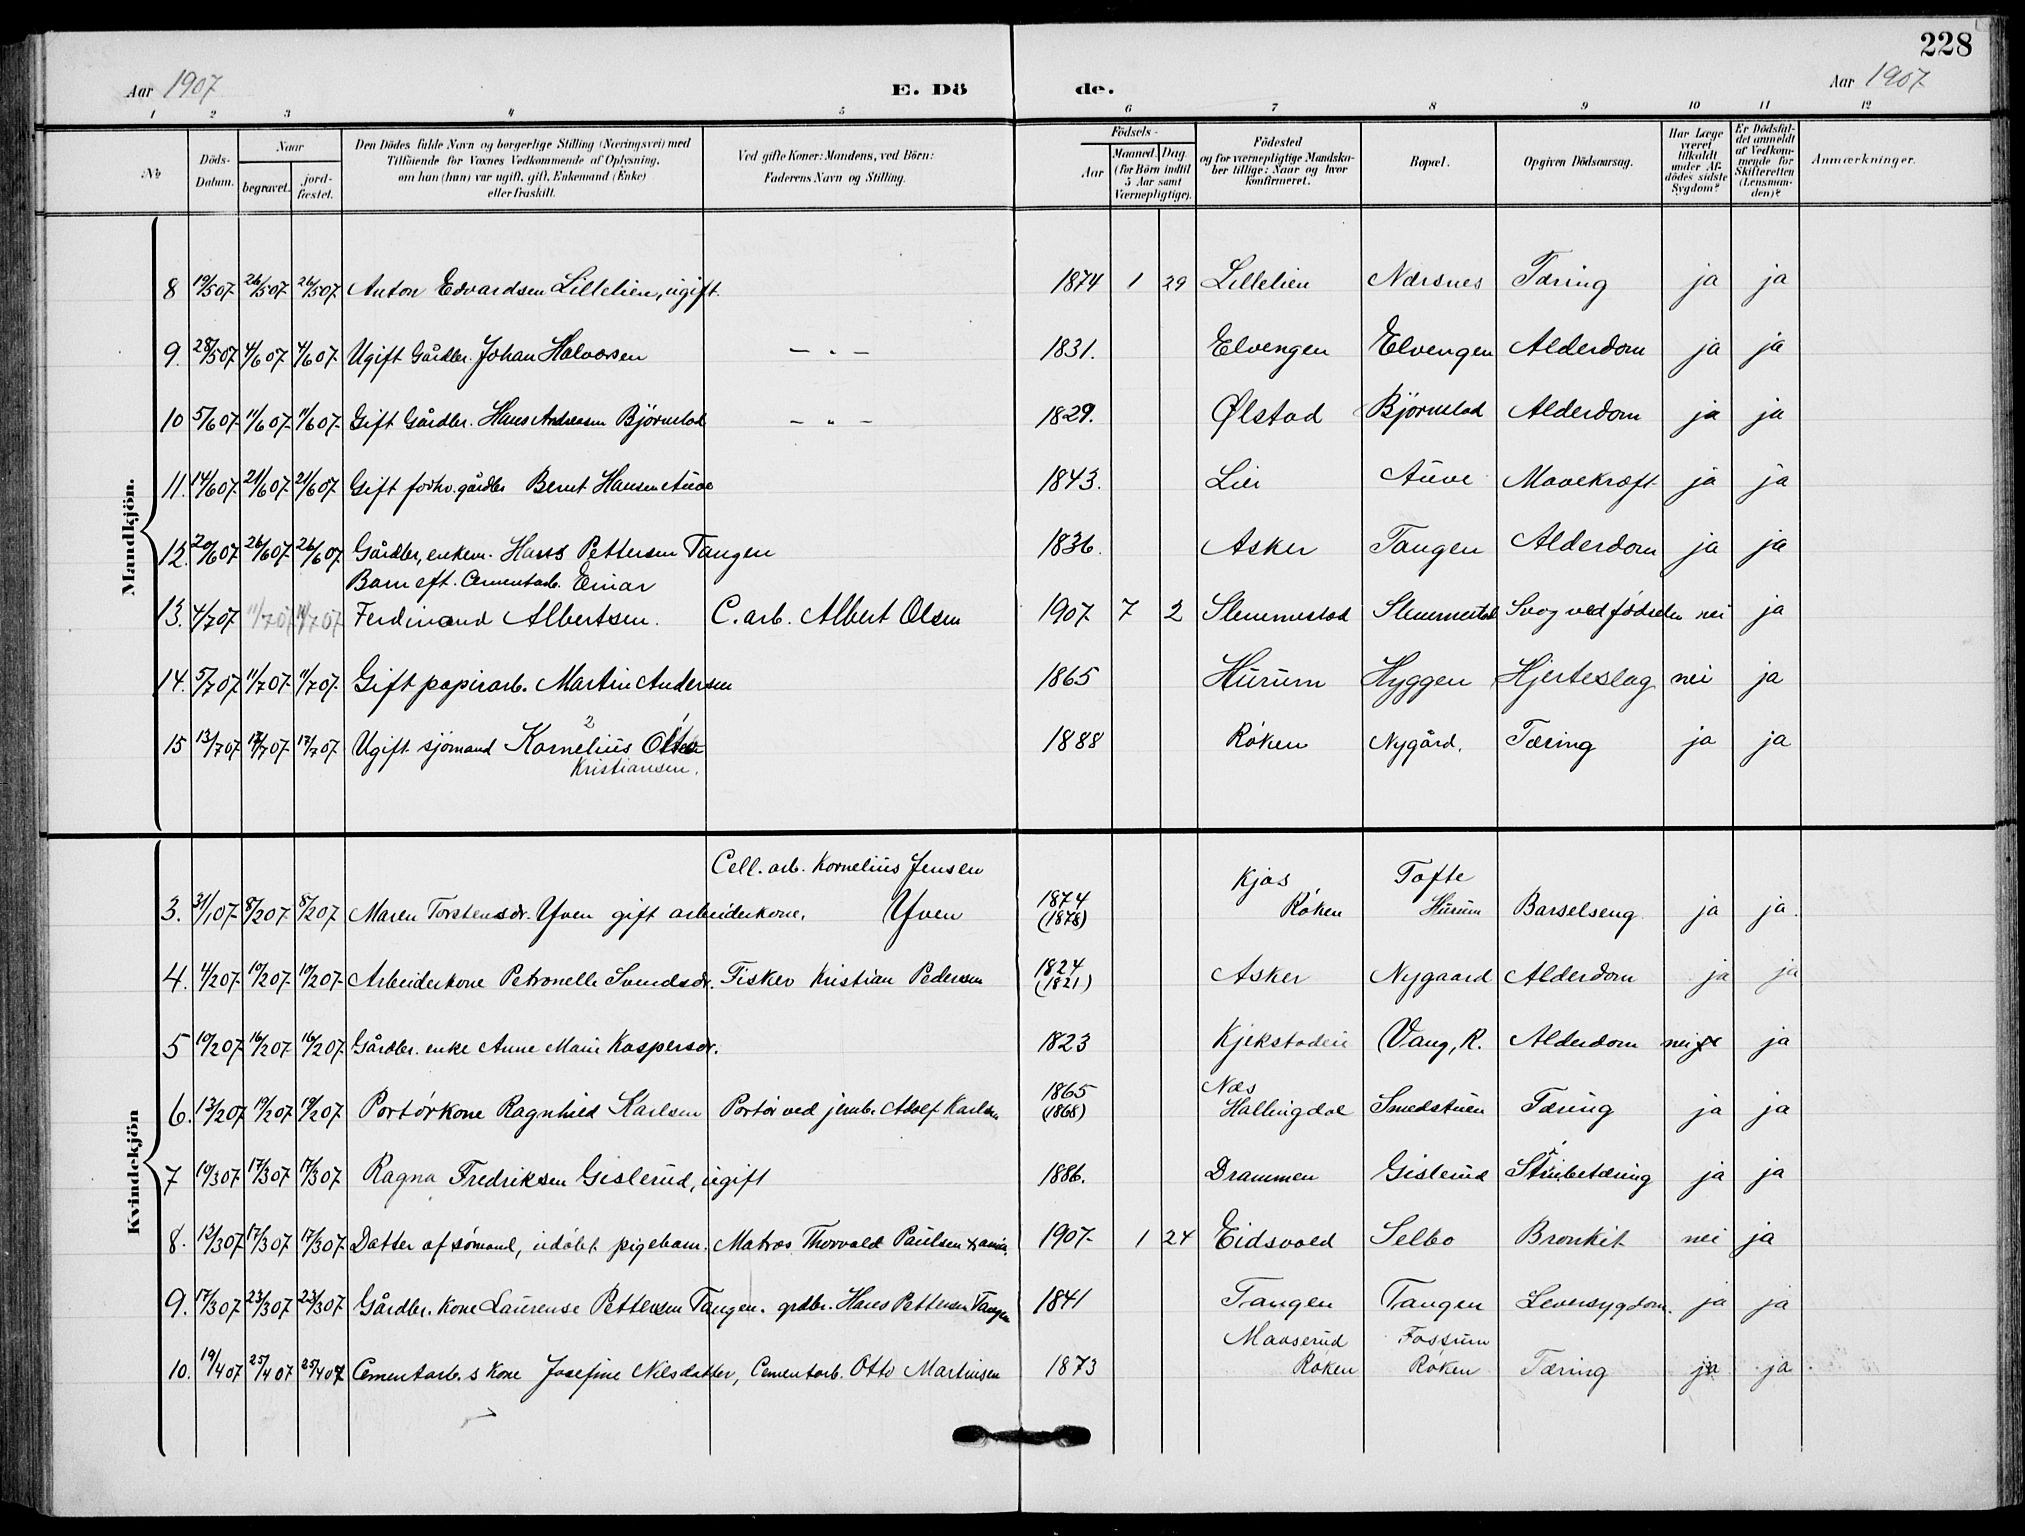 228
Aar 1907 E. Dö de. Aar 1907
1 2 3 4 5 6 7 8 9 10 11 12
No
Döds-Datum.
Naar
begravet.
jord-fæstet.
Den Dödes fulde Navn og borgerlige Stilling (Næringsvei) med
Tilföiende for Voxnes Vedkommende af Oplysning,
om han (hun) var ugift, gift, Enkemand (Enke)
eller fraskilt.
Ved gifte Koner: Mandens, ved Börn:
Faderens Navn og Stilling.
Födsels-
Aar
Maaned. Dag.
(for Börn indtil
5 Aar samt
Værnepligtige).
Födested
og for værnepligtige Mandska-
ber tillige: Naar og hvor
konfirmeret.
Bopæl.
Opgiven Dödsaarsag.
Har Læge
været
tilkaldt
under Af-
dödes sidste
Sygdom?
Er Dödsfal-
det anmeldt
af Vedkom-
mende for
Skifteretten
(Lensman-
den)?
Anmærkninger.
Mandkjön.
8 19/5 07 26/5 07 26/5 07 Anton Edvardsen Lillelien, ugift. 1874 1 29 Lillelien Nærsnes Tæring ja ja
9. 28/5 07 4/6 07 4/6 07 Ugift Gårdbr. Johan Halvorsen — " — 1831. Elvengen Elvengen Alderdom ja ja
10 5/6 07 11/6 07 11/6 07 Gift Gårdbr. Hans Andersen Björnstad — " — 1829. Ølstad Björnstad Alderdom ja ja
11. 14/6 07 21/6 07 21/6 07 Gift forhv. gårdbr Bernt Hansen Auve 1843. Lier Auve Mavekræft ja ja
12. 20/6 07 26/6 07 26/6 07 Gårdbr, enkem. Hans Pettersen Tangen 1836. Asker Tangen Alderdom ja ja
Barn eft. Cementarb. Einar
13. 4/7 07 11/7 07 11/7 07 Ferdinand Albertsen. C. arb. Albert Olsen 1907 7 2 Slemmestad Slemmestad Svag ved födselen nei ja
14. 5/7 07 11/7 07 11/7 07 Gift papirarb. Martin Andersen 1865 Hurum Hyggen Hjerteslag nei ja
15 13/7 07 17/7 07 17/7 07 Ugift sjömand Kornelius Otto 1888 Röken Nygård. Tæring ja ja
Kristiansen.
Kvindekjön
Cell. arb. Kornelius Jensen Kjøs Tofte
3. 31/1 07 8/2 07 8/2 07 Maren Torstensdr. Yven gift arbeiderkone, Yven 1874 (1878) Röken Hurum Barselseng ja ja.
4. 4/2 07 10/2 07 10/2 07 Arbeiderkone Petronelle Svendsdr. Fisker Kristian Pedersen 1824 (1821) Asker Nygaard Alderdom ja ja
5 10/2 07 16/2 07 16/2 07 Gårdbr. enke Anne Marie Kaspersdr. 1823 Kjekstadeie Vang, R. Alderdom nei ja
6. 13/2 07 19/2 07 19/2 07 Portörkone Ragnhild Karlsen Portör ved jernb. Adolf Karlsen 1865 (1868) Næs Hallingdal Smedstuen Tæring ja ja
7 10/3 07 17/3 07 17/3 07 Ragna Fredriksen Gislerud, ugift 1886. Drammen Gislerud Strubetæring ja ja
8. 13/3 07 17/3 07 17/3 07 Datter af sömand, udöbt pigebarn. Matros Thorvald Paulsen 1907 1 24 Eidsvold Selbo Bronkit nei ja
9. 17/3 07 23/3 07 23/3 07 Gårdbr. kone Laurense Pettersen Tangen. grdbr. Hans Pettersen Tangen 1841 Tangen Tangen Leversygdom. ja ja
Maaserud Fossum
10. 19/4 07 25/4 07 25/4 07 Cementarb.s kone Josefine Nilsdatter, Cementarb. Otto Martinsen 1873 Röken Röken Tæring ja ja